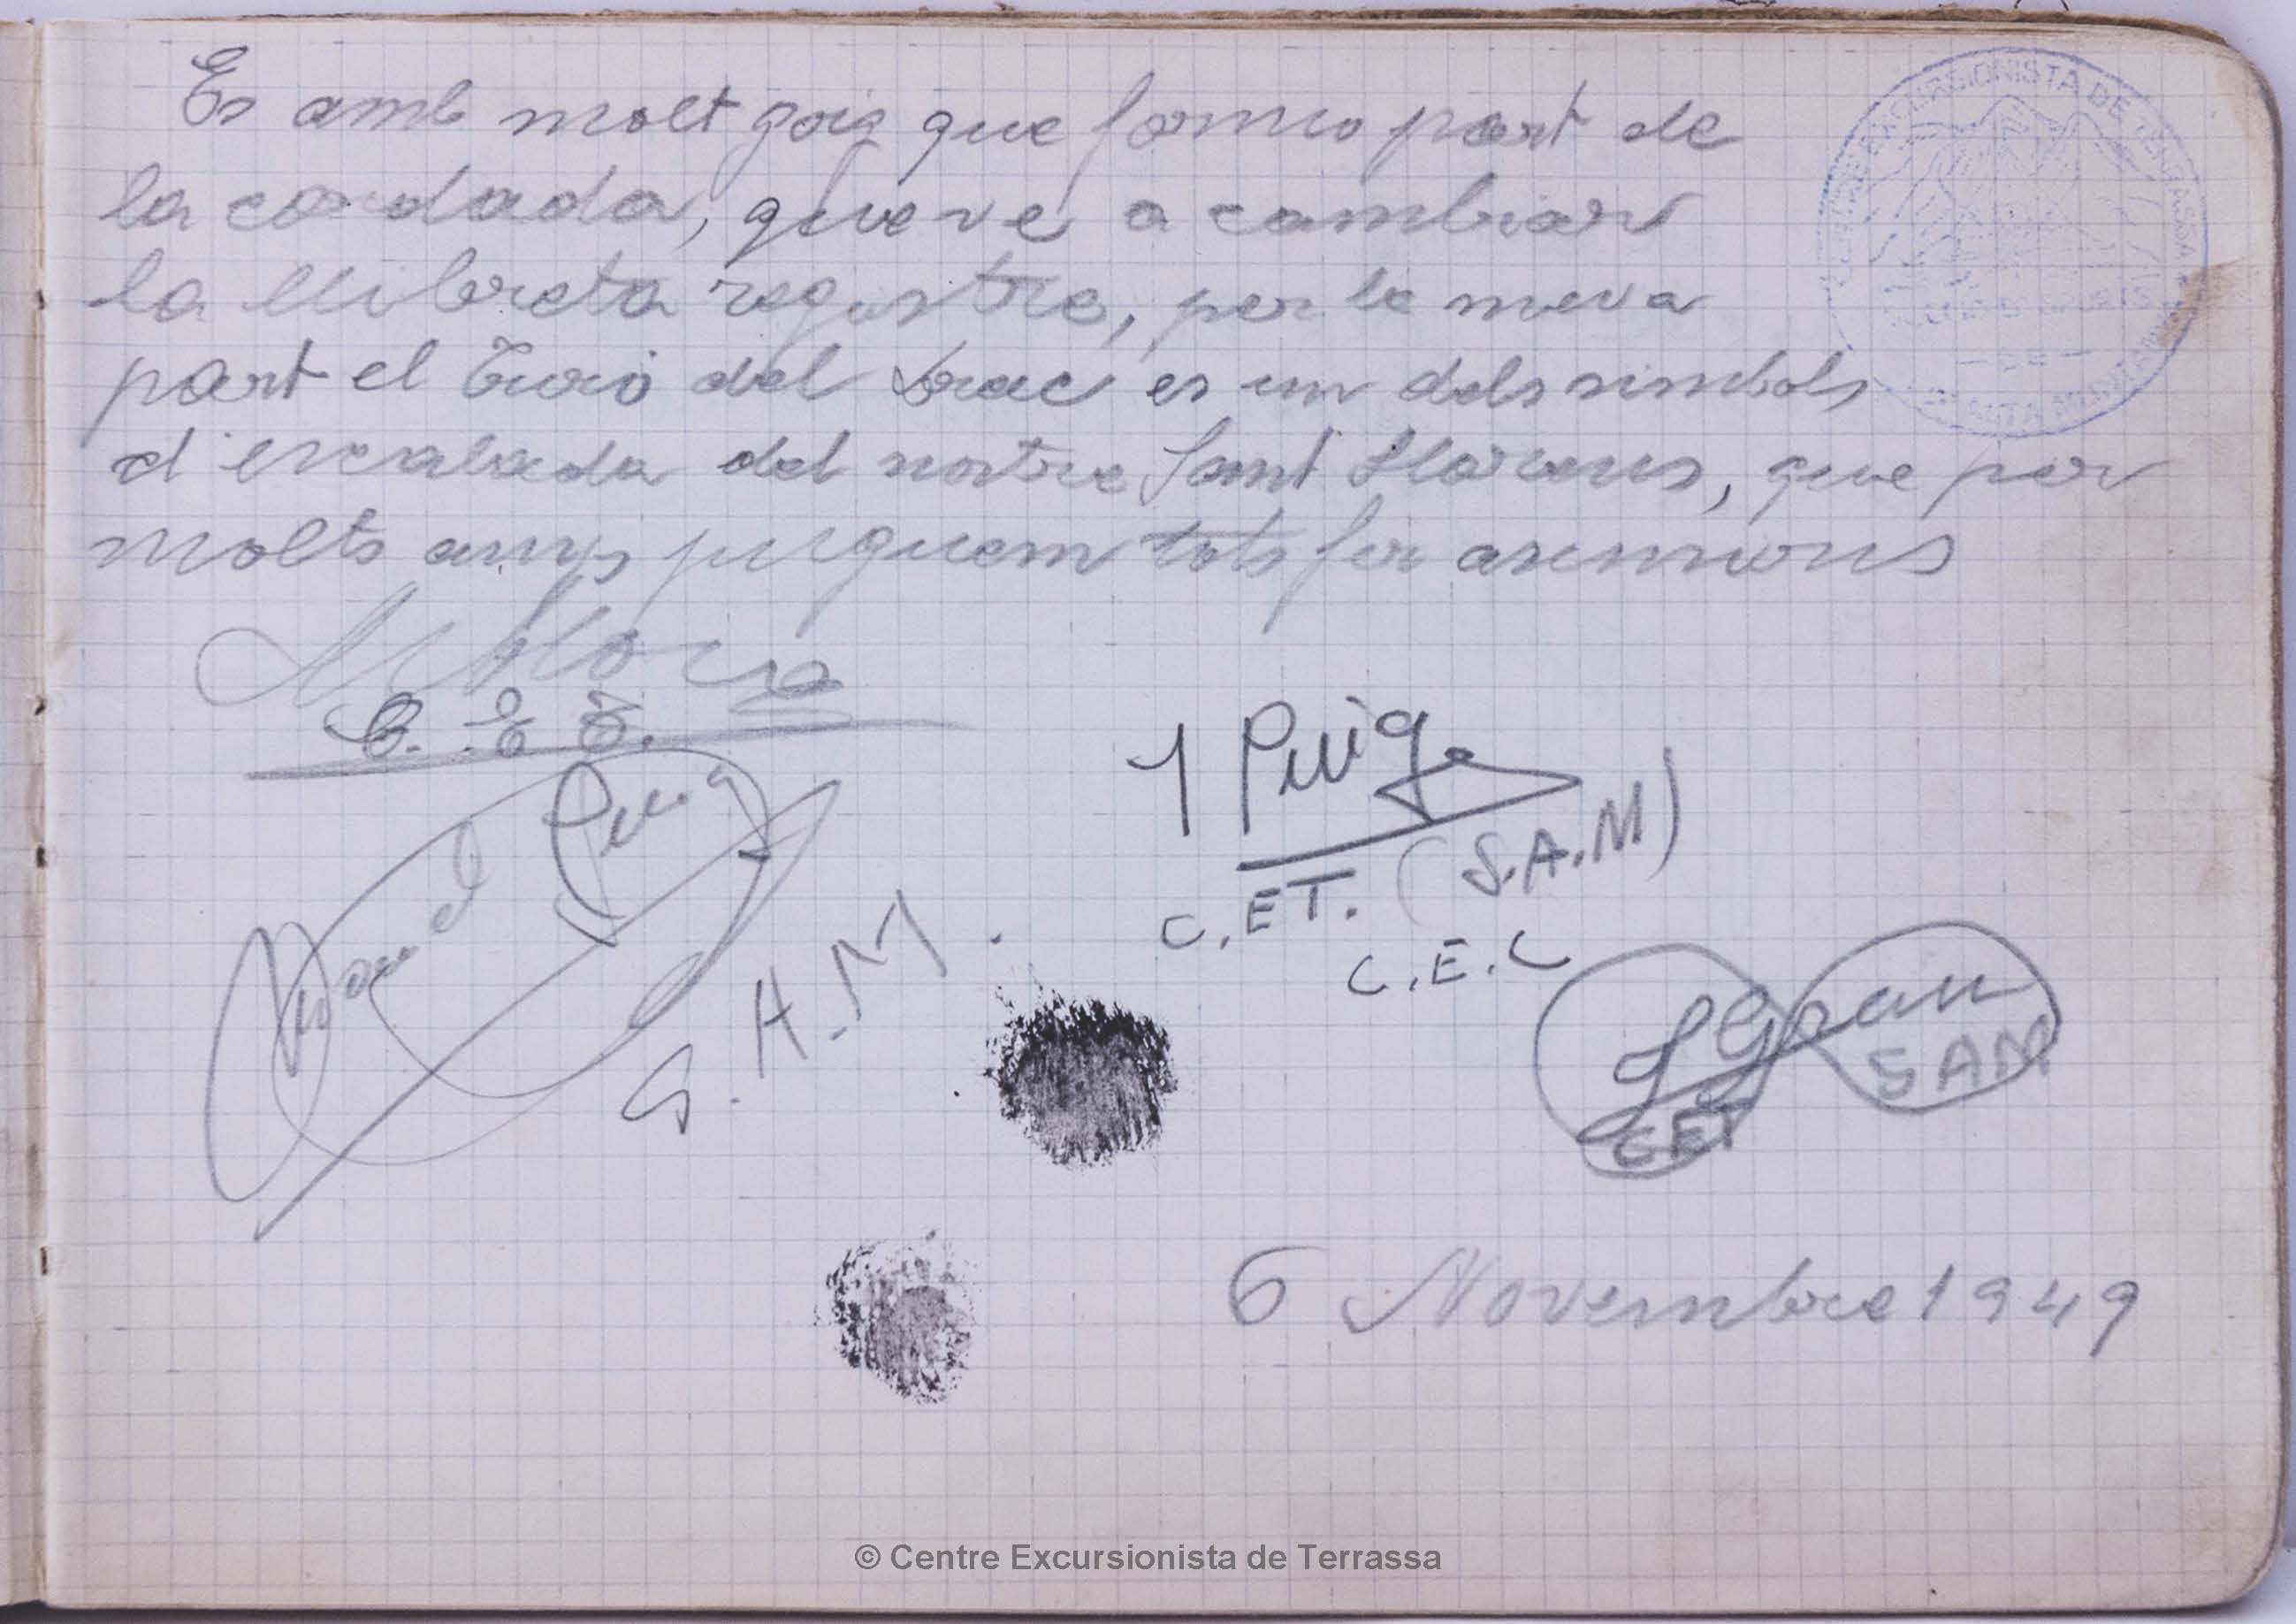 Es amb molt goig que formo part de
la cordada, que ve a cambiar
la llibreta registre, per la meva
part el Turó del Drac es un dels simbols
d'escalada del nostre Sant Llorens, que per
molts anys puguem tots fer asencions
C. E. T.
J Puig
C.E.T. (S.A.M)
C.E.C
Puig
S.A.M.
J Grau
SAM
CET
6 Novembre 1949
CENTRE EXCURSIONISTA DE TERRASSA
© Centre Excursionista de Terrassa